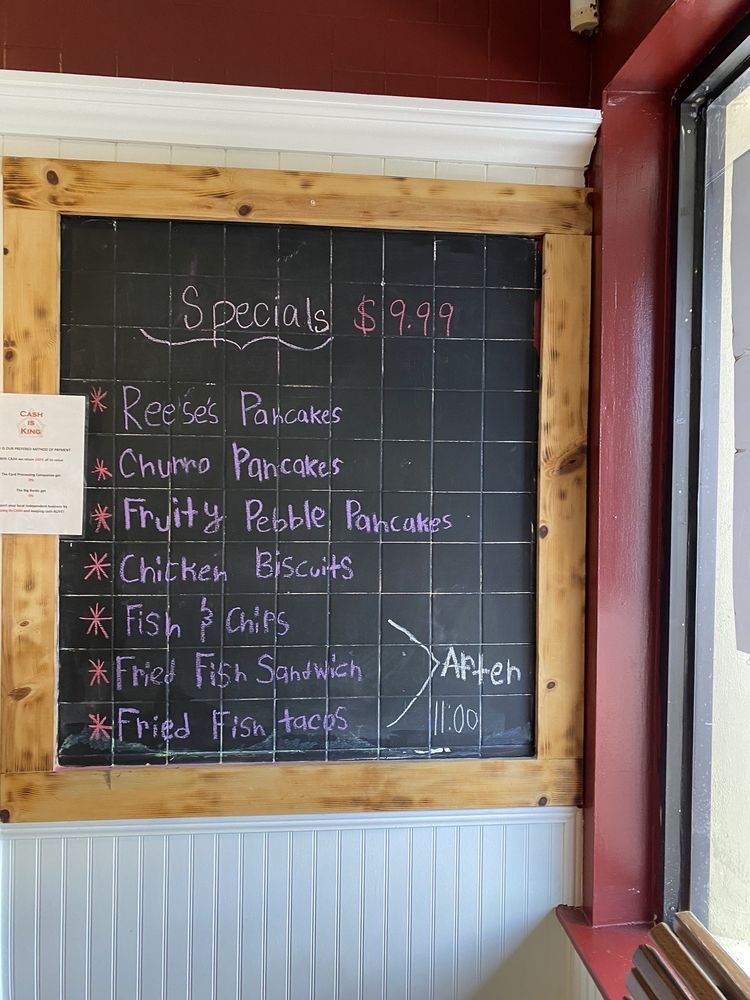 Specials $9.99
* Reese's Pancakes
* Churro Pancakes
* Fruity Pebble Pancakes
* Chicken Biscuits
* Fish & Chips
* Fried Fish Sandwich
* Fried Fish tacos
After
11:00
CASH
IS
KING
IS OUR PREFERED METHOD OF PAYMENT
With CASH we retain 100% of its value
The Card Processing Companies get
0%
The Big Banks get
0%
your local independent business by
in CASH and keeping cash ALIVE!